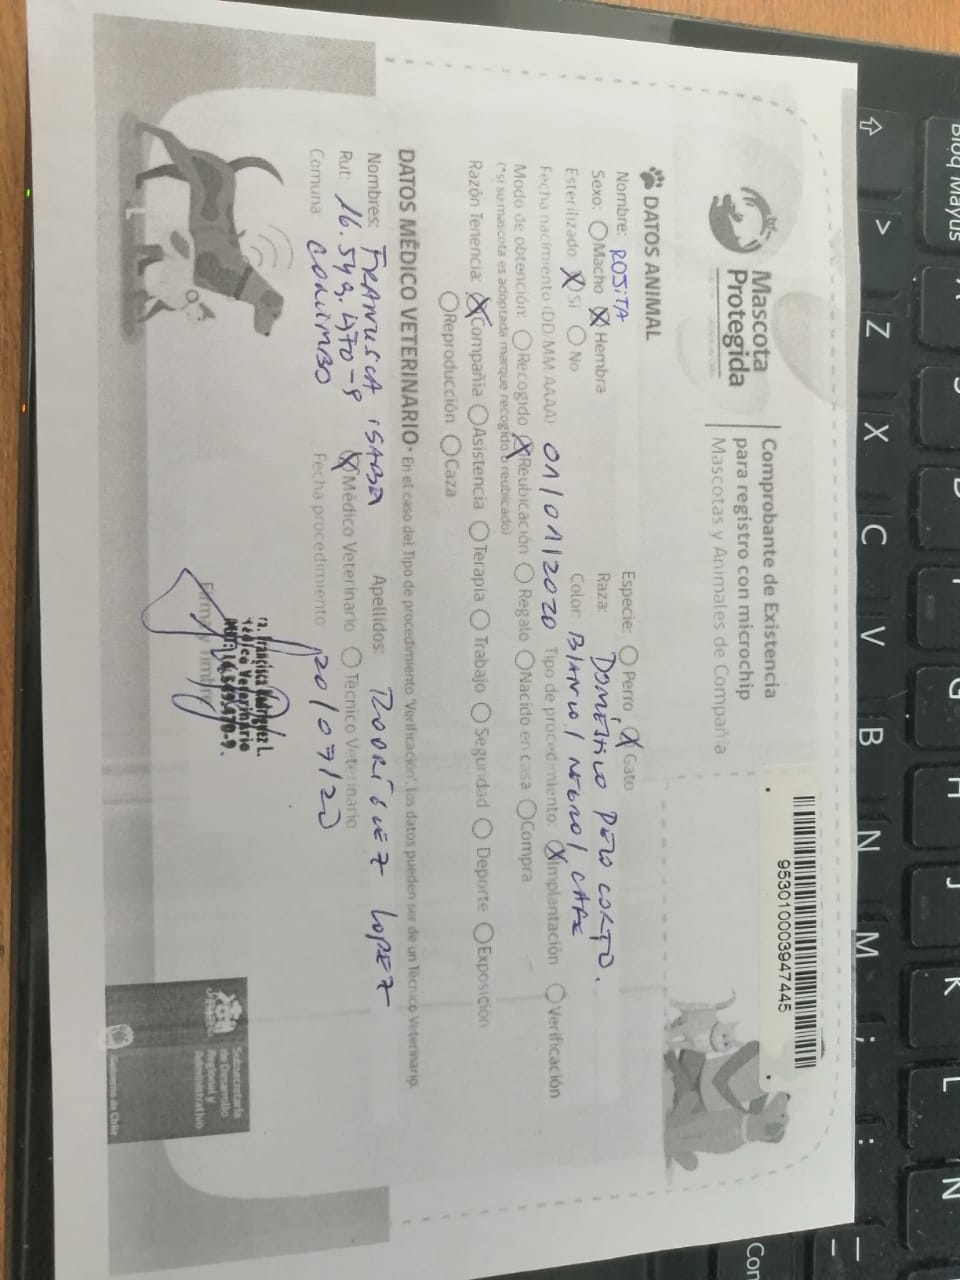 Mascota
Protegida
Comprobante de Existencia
para registro con microchip
Mascotas y Animales de Compañía
953010003947445
DATOS ANIMAL
Nombre: ROSITA Especie: Perro Gato
Sexo: Macho Hembra Raza: DOMÉSTICO PELO CORTO.
Esterilizado Si No Color: BLANCO / NEGRO / CAFE
Fecha nacimiento (DD/MM/AAAA) 01/01/2020 Tipo de procedimiento: Implantación Verificación
Modo de obtención: Recogido Reubicación Regalo Nacido en casa Compra
(*si su mascota es adoptada marque recogido o reubicado)
Razón Tenencia: Compañía Asistencia Terapia Trabajo Seguridad Deporte Exposición
Reproducción Caza
DATOS MÉDICO VETERINARIO* En el caso del Tipo de procedimiento 'Verificación', los datos pueden ser de un Técnico Veterinario.
Nombres: FRANCISCA ISABEL Apellidos: RODRÍGUEZ LOPEZ
Rut: 16.549.470-9 Médico Veterinario Técnico Veterinario
Comuna COQUIMBO Fecha procedimiento 20/07/20
Francisca Rodríguez L.
Médico Veterinario
16.549.470-9.
Firma y Timbre
Subsecretaría
de Desarrollo
Regional y
Administrativo
Gobierno de Chile
Bloq Mayús
> Z X C V B N M ; :